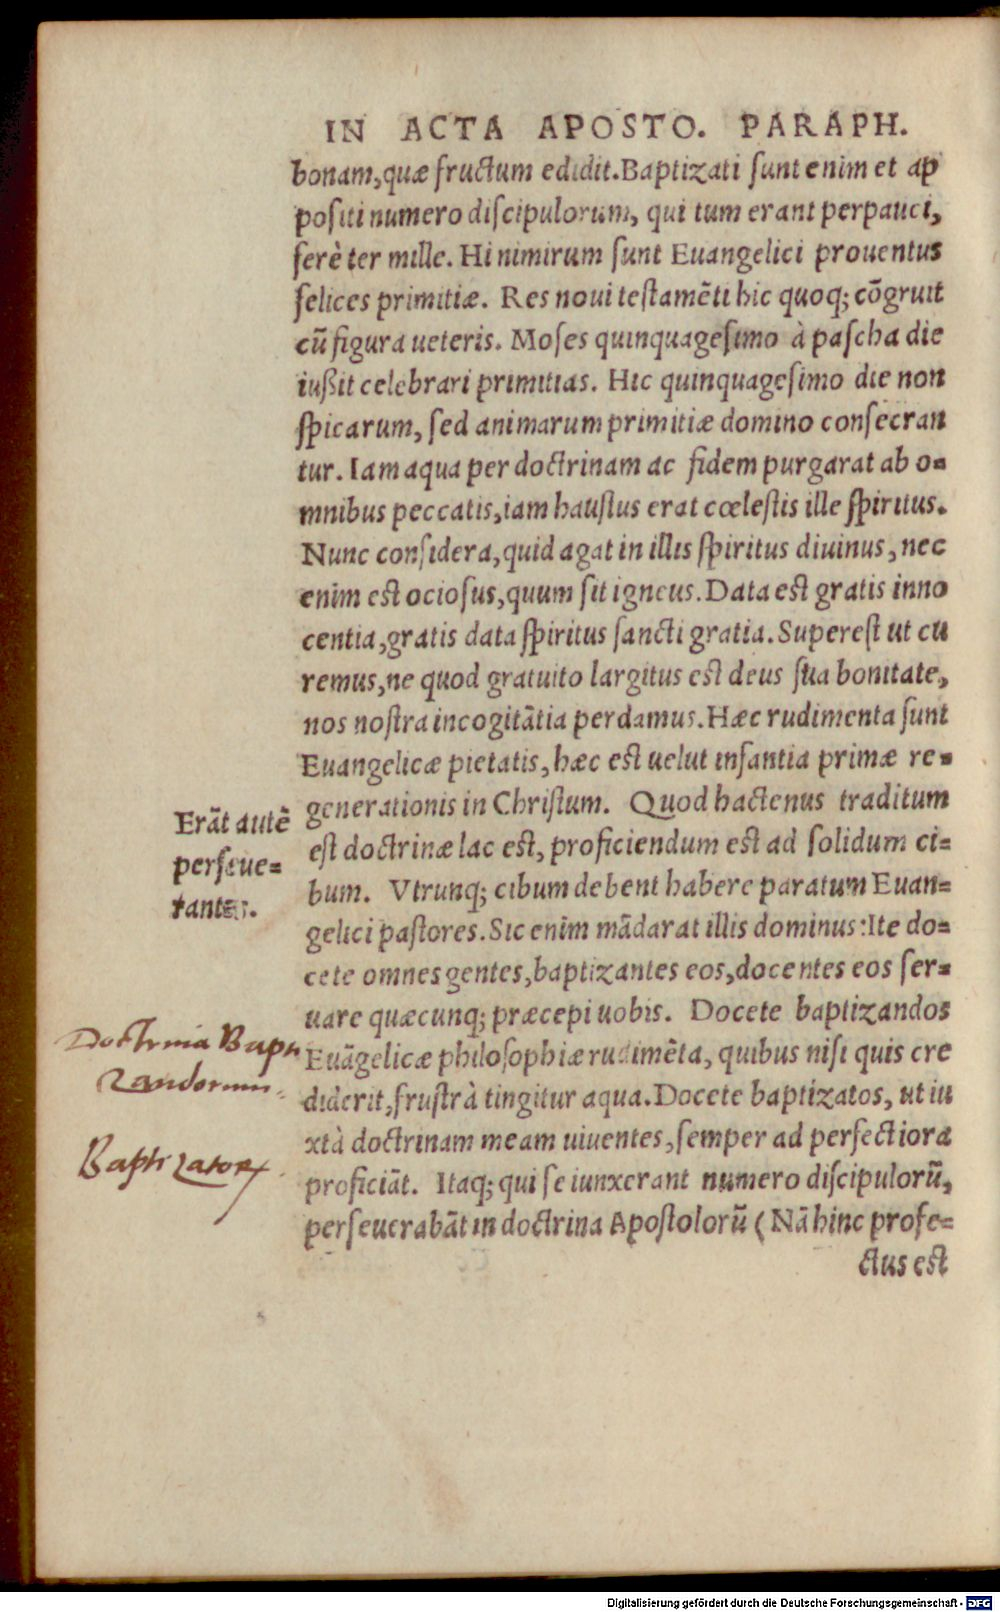 IN ACTA APOSTO. PARAPH.
bonam, quæ fructum edidit. Baptizati sunt enim et ap
positi numero discipulorum, qui tum erant perpauci,
ferè ter mille. Hi nimirum sunt Euangelici prouentus
felices primitiæ. Res noui testamēti hic quoq; cōgruit
cū figura ueteris. Moses quinquagesimo à pascha die
iußit celebrari primitias. Hic quinquagesimo die non
spicarum, sed animarum primitiæ domino consecran
tur. Iam aqua per doctrinam ac fidem purgarat ab o-
mnibus peccatis, iam haustus erat cœlestis ille spiritus.
Nunc considera, quid agat in illis spiritus diuinus, nec
enim est ociosus, quum sit igneus. Data est gratis inno
centia, gratis data spiritus sancti gratia. Superest ut cu
remus, ne quod gratuito largitus est deus sua bonitate,
nos nostra incogitātia perdamus. Hæc rudimenta sunt
Euangelicæ pietatis, hæc est uelut infantia primæ re-
generationis in Christum. Quod hactenus traditum
est doctrinæ lac est, proficiendum est ad solidum ci-
bum. Vtrunq; cibum debent habere paratum Euan-
gelici pastores. Sic enim mādarat illis dominus: Ite do-
cete omnes gentes, baptizantes eos, docentes eos ser-
uare quæcunq; præcepi uobis. Docete baptizandos
Euāgelicæ philosophiæ rudimēta, quibus nisi quis cre
diderit, frustrà tingitur aqua. Docete baptizatos, ut iu
xtà doctrinam meam uiuentes, semper ad perfectiora
proficiāt. Itaq; qui se iunxerant numero discipulorū,
perseuerabāt in doctrina Apostolorū (Nā hinc profe-
ctus est
Erāt autē
perseue-
rantes.
Doctrina Bapti
zandorum.
Baptizator
Digitalisierung gefördert durch die Deutsche Forschungsgemeinschaft - DFG